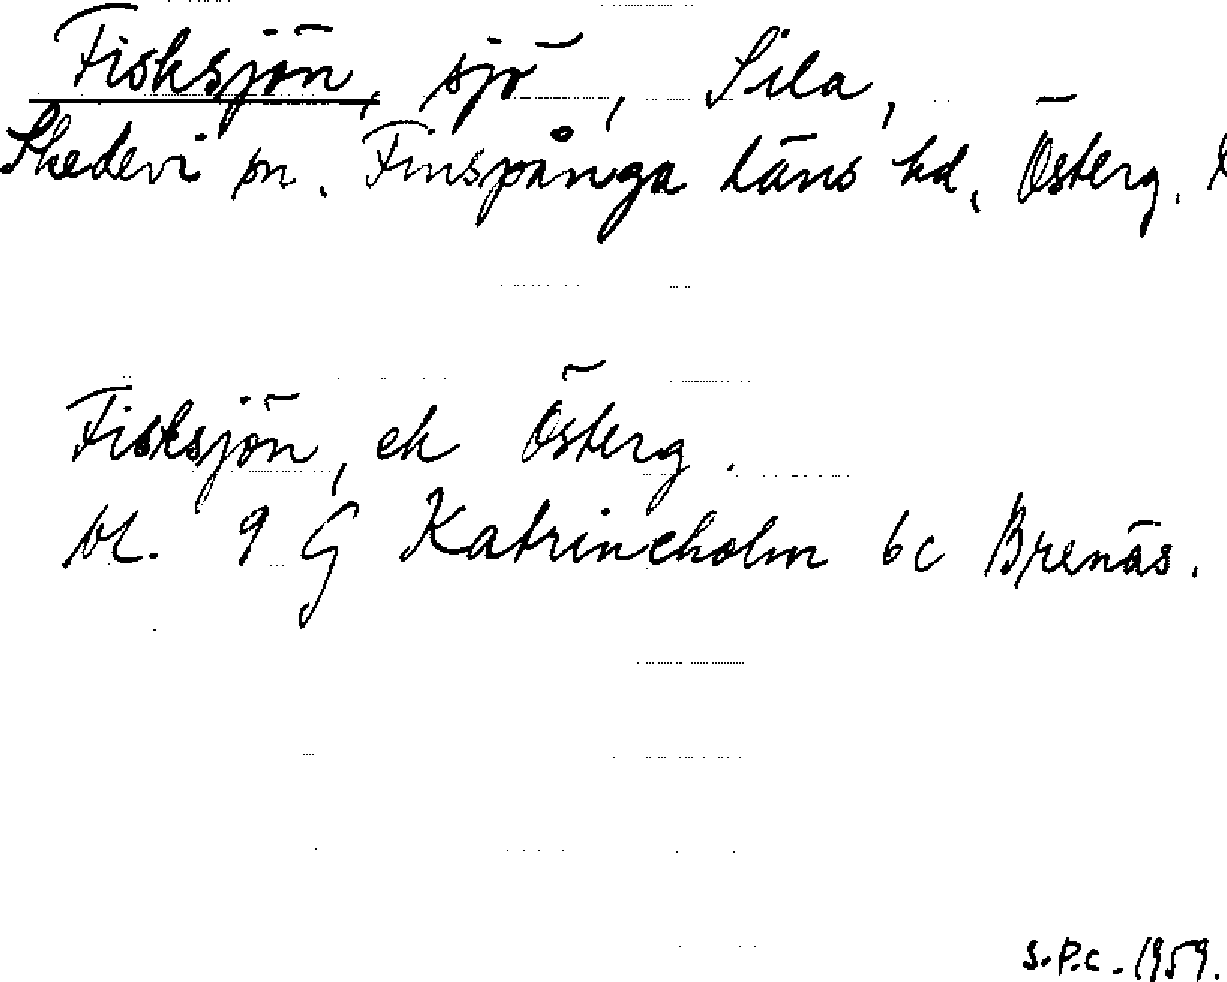 Fisksjön, sjö, Sila,
Skedevi sn. Finspånga läns hd, Österg.
Fisksjön, ek Österg.
bl. 9 G Katrineholm 6c Brenäs.
S.P.C. 1959.